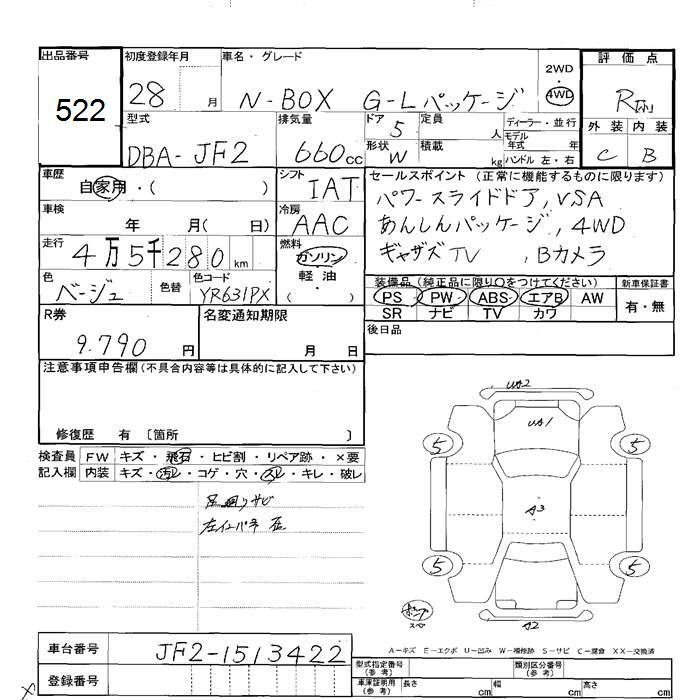 出品番号 初度登録年月 車名・グレード 2WD 評価点
522 28 月 N-BOX G-Lパッケージ 4WD R
型式 排気量 ドア 定員 ディーラー・並行 外装 内装
DBA-JF2 660cc 5 人 モデル年式 年 C B
形状 積載
W kg ハンドル 左・右
車歴 シフト セールスポイント (正常に機能するものに限ります)
自家用・( ) IAT パワースライドドア, VSA
車検 冷房 あんしんパッケージ, 4WD
年 月( 日) AAC ギャザズTV, Bカメラ
走行 燃料
4万5千280km ガソリン
軽油
( )
色 色替 色コード 装備品 (純正品に限り○をつけてください) 新車保証書
ベージュ YR631PX PS PW ABS エアB AW 有・無
SR ナビ TV カワ
R券 名変通知期限 後日品
9.790円 月 日
注意事項申告欄 (不具合内容等は具体的に記入して下さい)
修復歴 有 〔箇所 〕
検査員 FW キズ・飛石・ヒビ割・リペア跡・×要
記入欄 内装 キズ・汚レ・コゲ・穴・スレ・キレ・破レ
足廻りサビ
左インパネ
UA2
UA1
5 5
A3
5 5
スペア
A2
A−キズ E−エクボ U−凹み W−補修跡 S−サビ C−腐食 XX−交換済
車台番号 JF2-1513422 型式指定番号 (参考) 類別区分番号 (参考)
登録番号 車庫証明用 (参考) 長さ cm 幅 cm 高さ cm